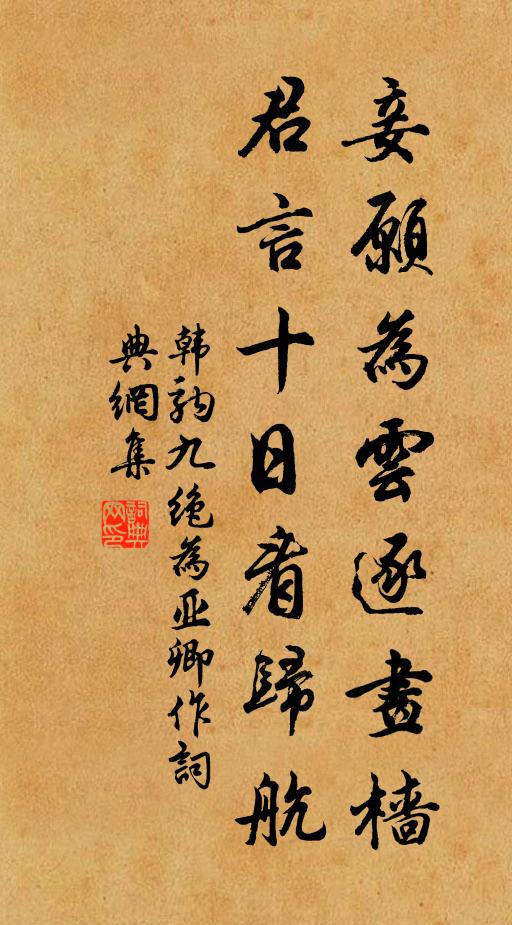 妾願為雲逐畫檣
君言十日看歸航
韩駒九绝為亚卿作詞
典網集
詞典网印